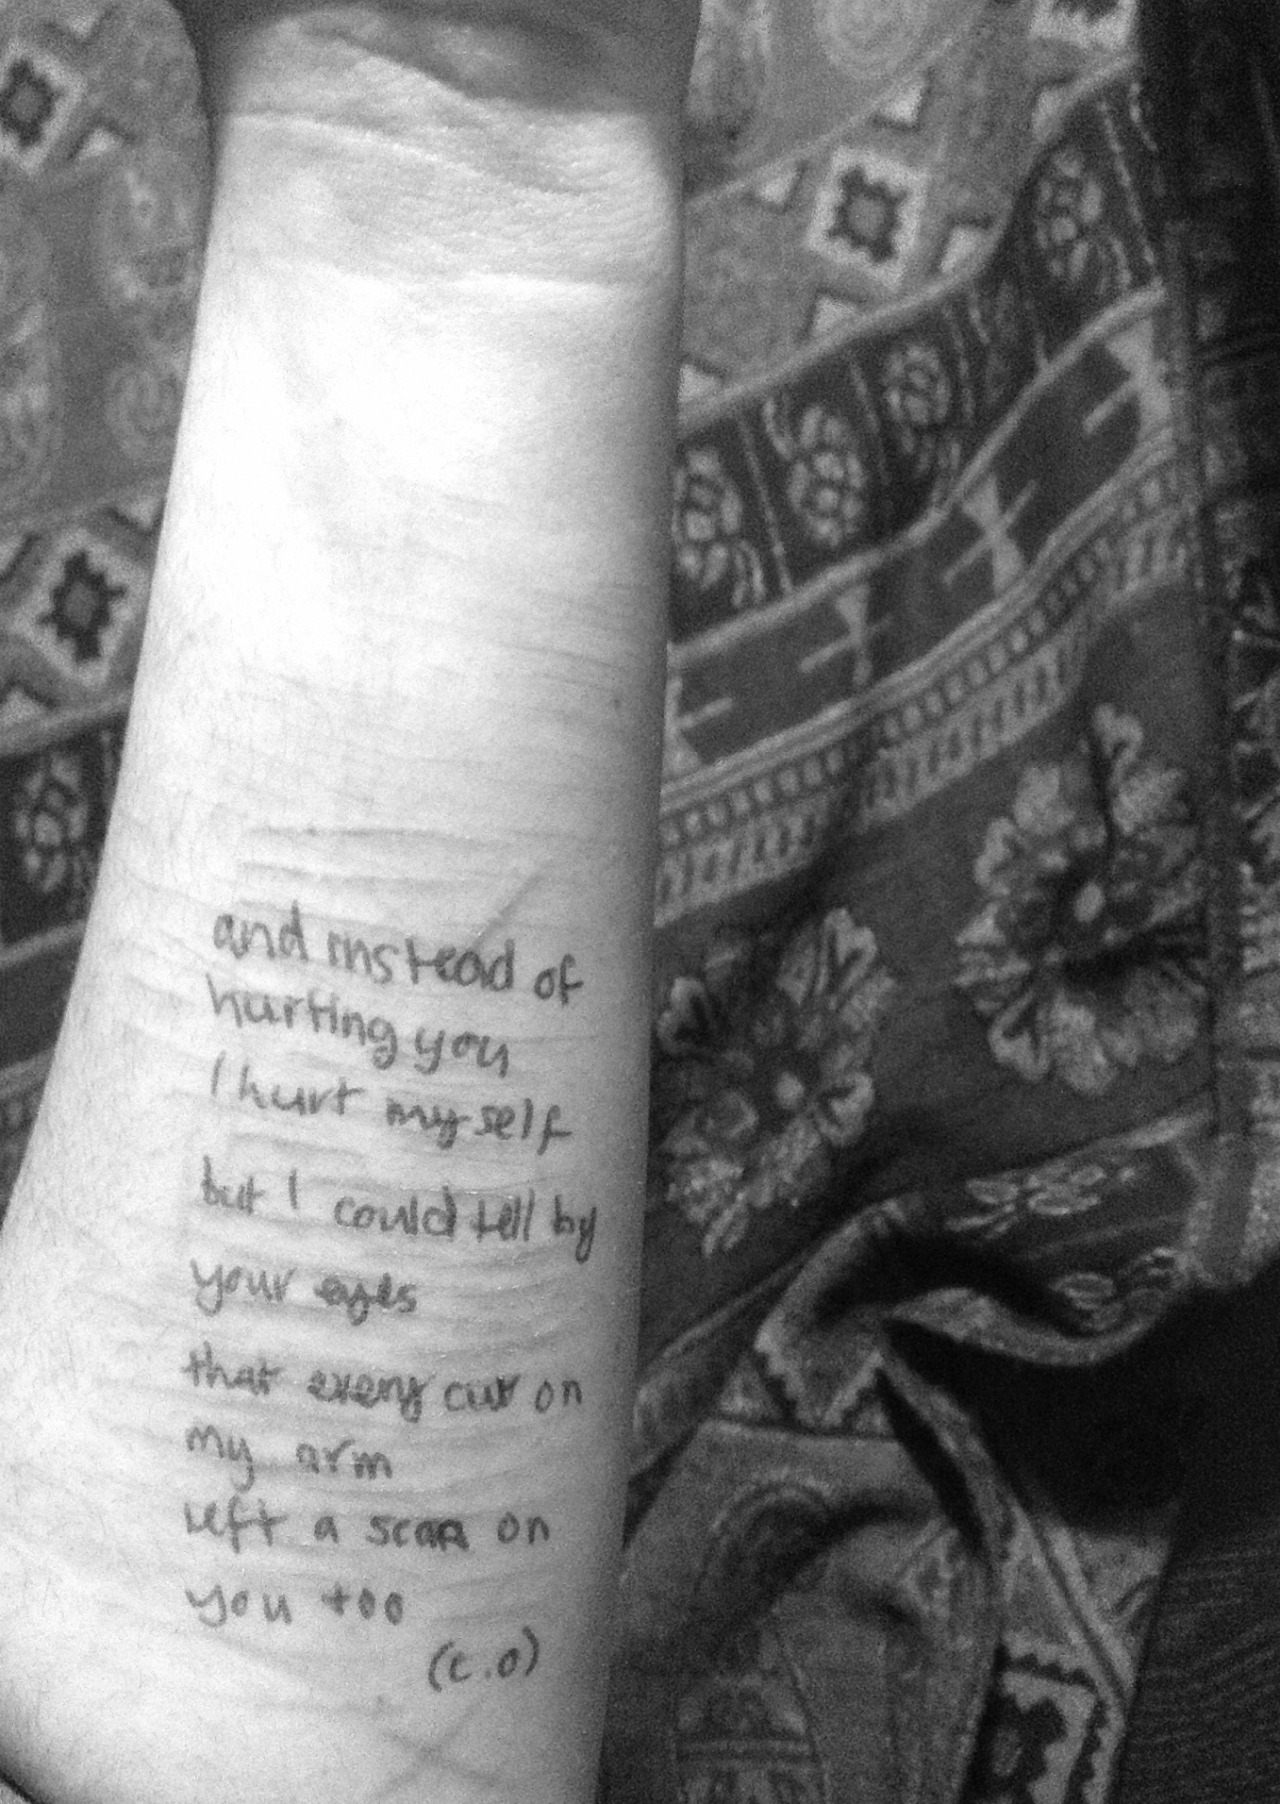 and instead of
hurting you
I hurt myself
but I could tell by
your eyes
that every cut on
my arm
left a scar on
you too
(c.o)